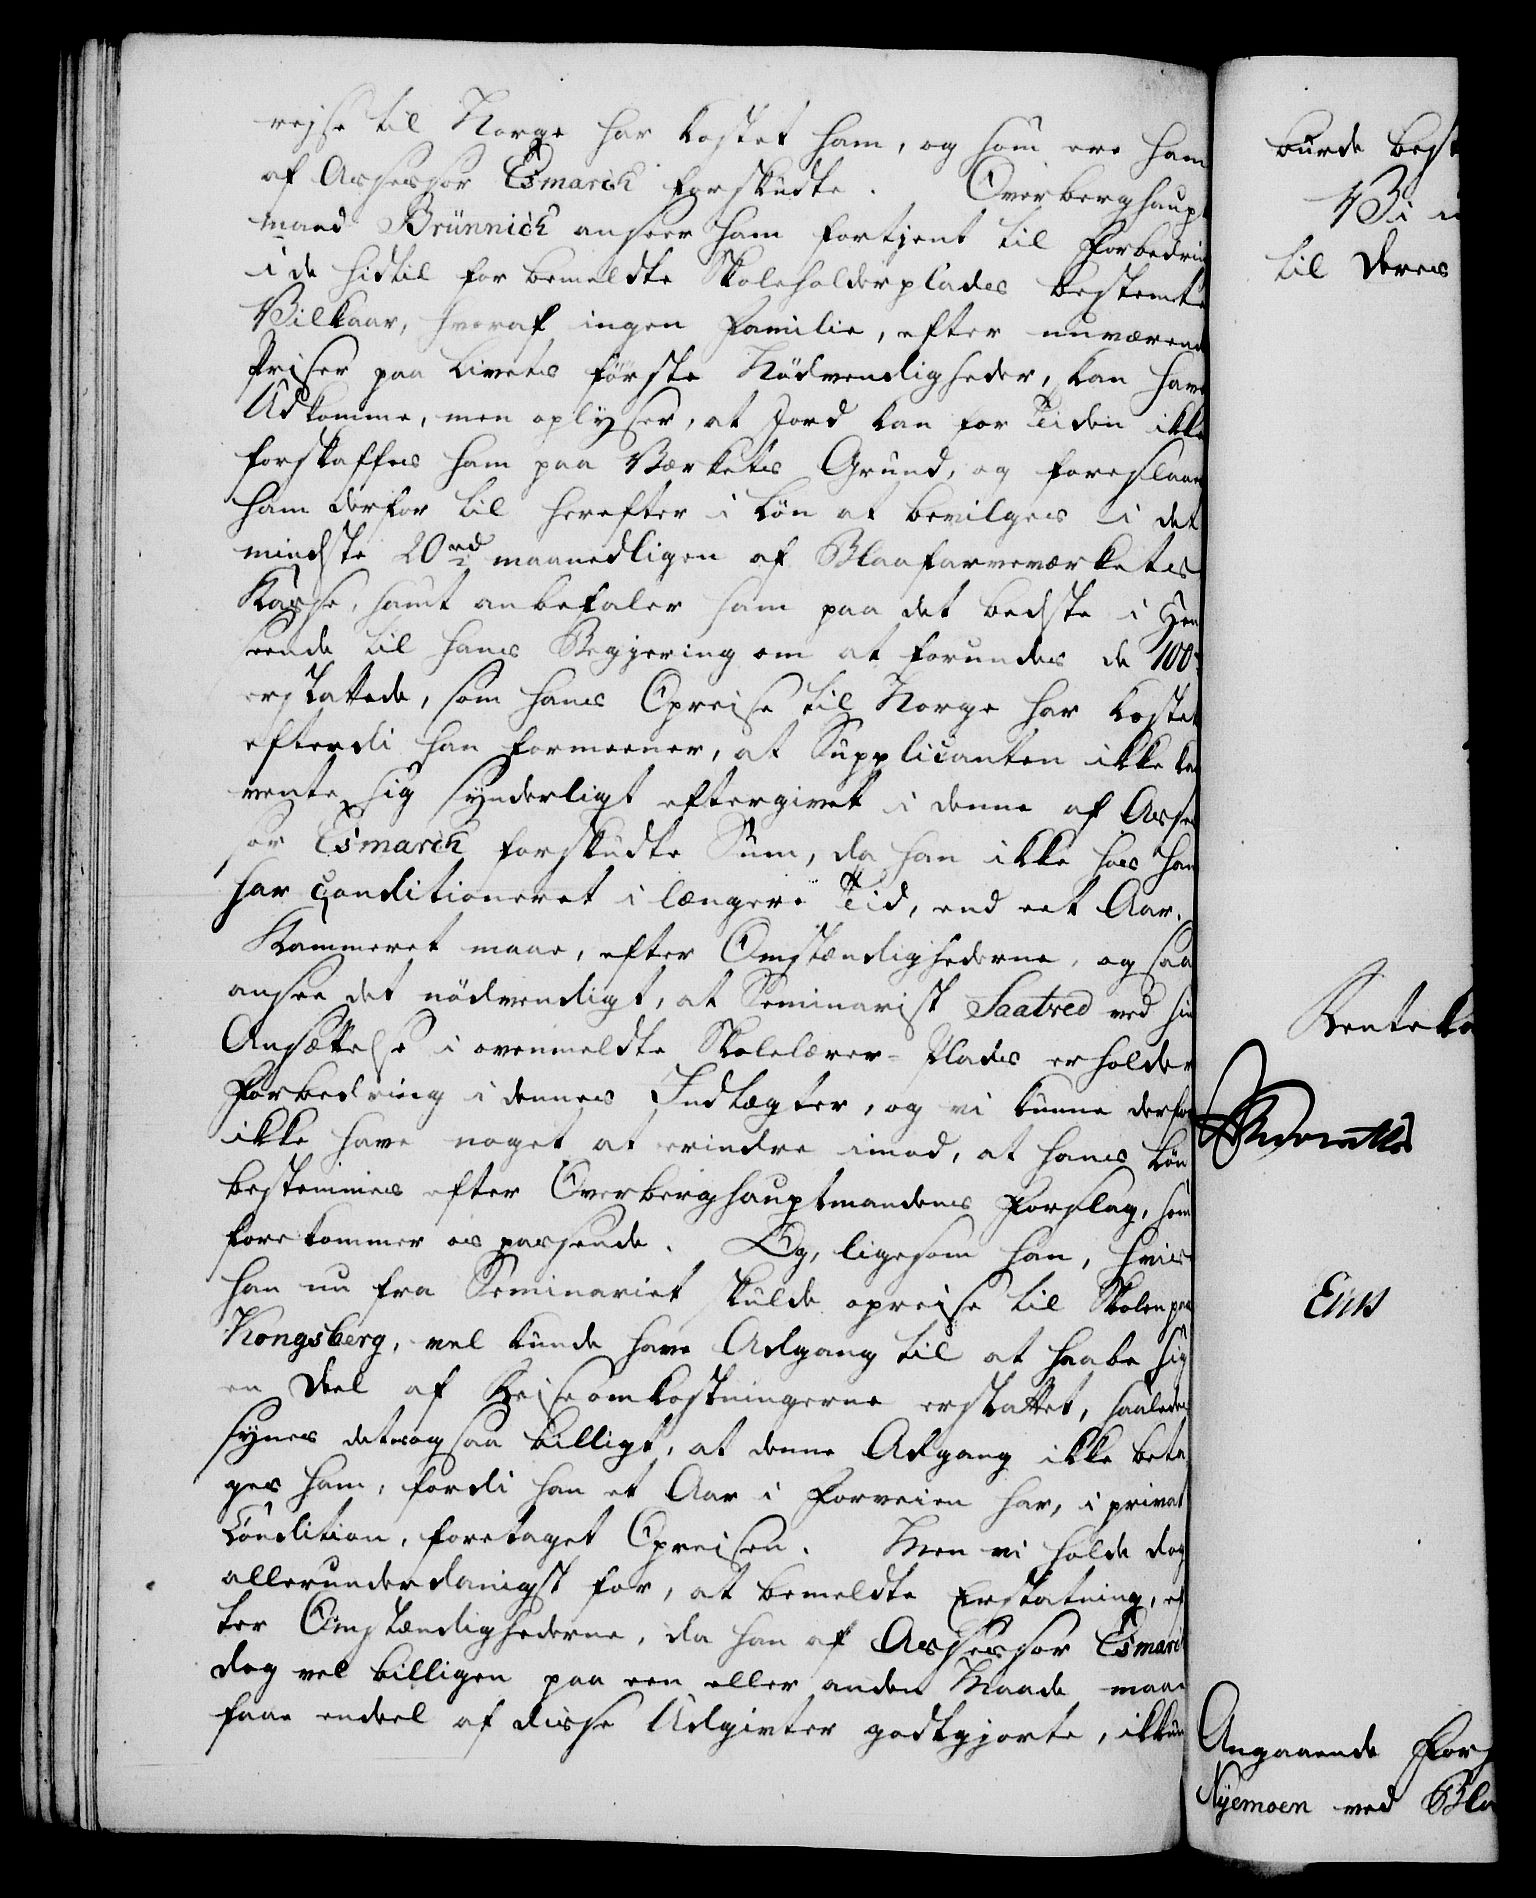 rejse til Norge har kostet ham, og som ere ham
af Assessor Esmarch forskudte. Overberghaupt
mand Brünnich anseer ham fortjent til Forbedring
i de hidtil for bemeldte Skoleholderplads bestemte
Vilkaar, hvoraf ingen Familie, efter nuværende
Priser paa Livets förste Nödvendigheder, kan have
Udkomme, men oplyser, at Jord kan for Tiden ikke
forskaffes ham paa Værkets Grund, og foreslaaer
ham derfor til herefter i Løn at bevilges i det
mindste 20 rd maanedligen af Blaafarveværkets
Kasse, samt anbefaler ham paa det bedste i Hen
seende til hans Begjering om at forundes de 100
erstattede, som hans Opreise til Norge har kostet
efterdi han formeener, at Supplicanten ikke kan
vente sig synderligt eftergivet i denne af Asses
sor Esmarch forskudte Sum, da han ikke hos ham
har conditioneret i længere Tid, end eet Aar.
Kammeret maae, efter Omstændighederne, ogsaa
ansee det nödvendigt, at Seminarist Saatved ved sin
Ansættelse i ovenmeldte Skolelærer-Plads erholder
Forbedring i dennes Indtægter, og vi kunne derfor
ikke have noget at erindre imod, at hans Løn
bestemmes efter Overberghauptmandens Forslag, som
forekommer os passende. Og, ligesom han, hvis
han nu fra Seminariet skulde opreise til Skolen paa
Kongsberg, vel kunde have Adgang til at haabe sig
en Deel af Reiseomkostningerne erstattet, saaledes
synes det os ogsaa billigt, at denne Adgang ikke beta
ges ham, fordi han et Aar i Forveien har, i privat
Condition, foretaget Opreisen. Men vi holde dog
allerunderdanigst for, at bemeldte Erstatning, ef
ter Omstændighederne, da han af Assessor Esmarch
dog vel billigen paa een eller anden Maade maae
faae endeel af disse Udgivter godtgjorte, ikkun
burde best
Vi i
til Deres
Renteka
Ems
Angaaende Fors
Nyemoen ved Bla